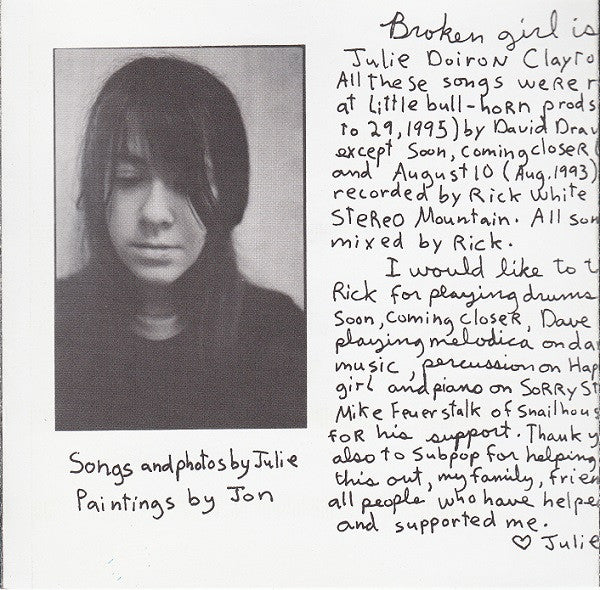 Songs and photos by Julie
Paintings by Jon
Broken girl is
Julie Doiron Clayto
All these songs were r
at little bull-horn prods
to 29, 1995) by David Drav
except Soon, coming closer (
and August 10 (Aug. 1993)
recorded by Rick White
Stereo Mountain. All son
mixed by Rick.
I would like to t
Rick for playing drums
Soon, Coming closer, Dave
playing melodica on dar
music, percussion on Hap
girl and piano on Sorry St
Mike Feuerstalk of Snailhous
for his support. Thank y
also to Subpop for helping
this out, my family, frien
all people who have helpe
and supported me.
♡ Julie